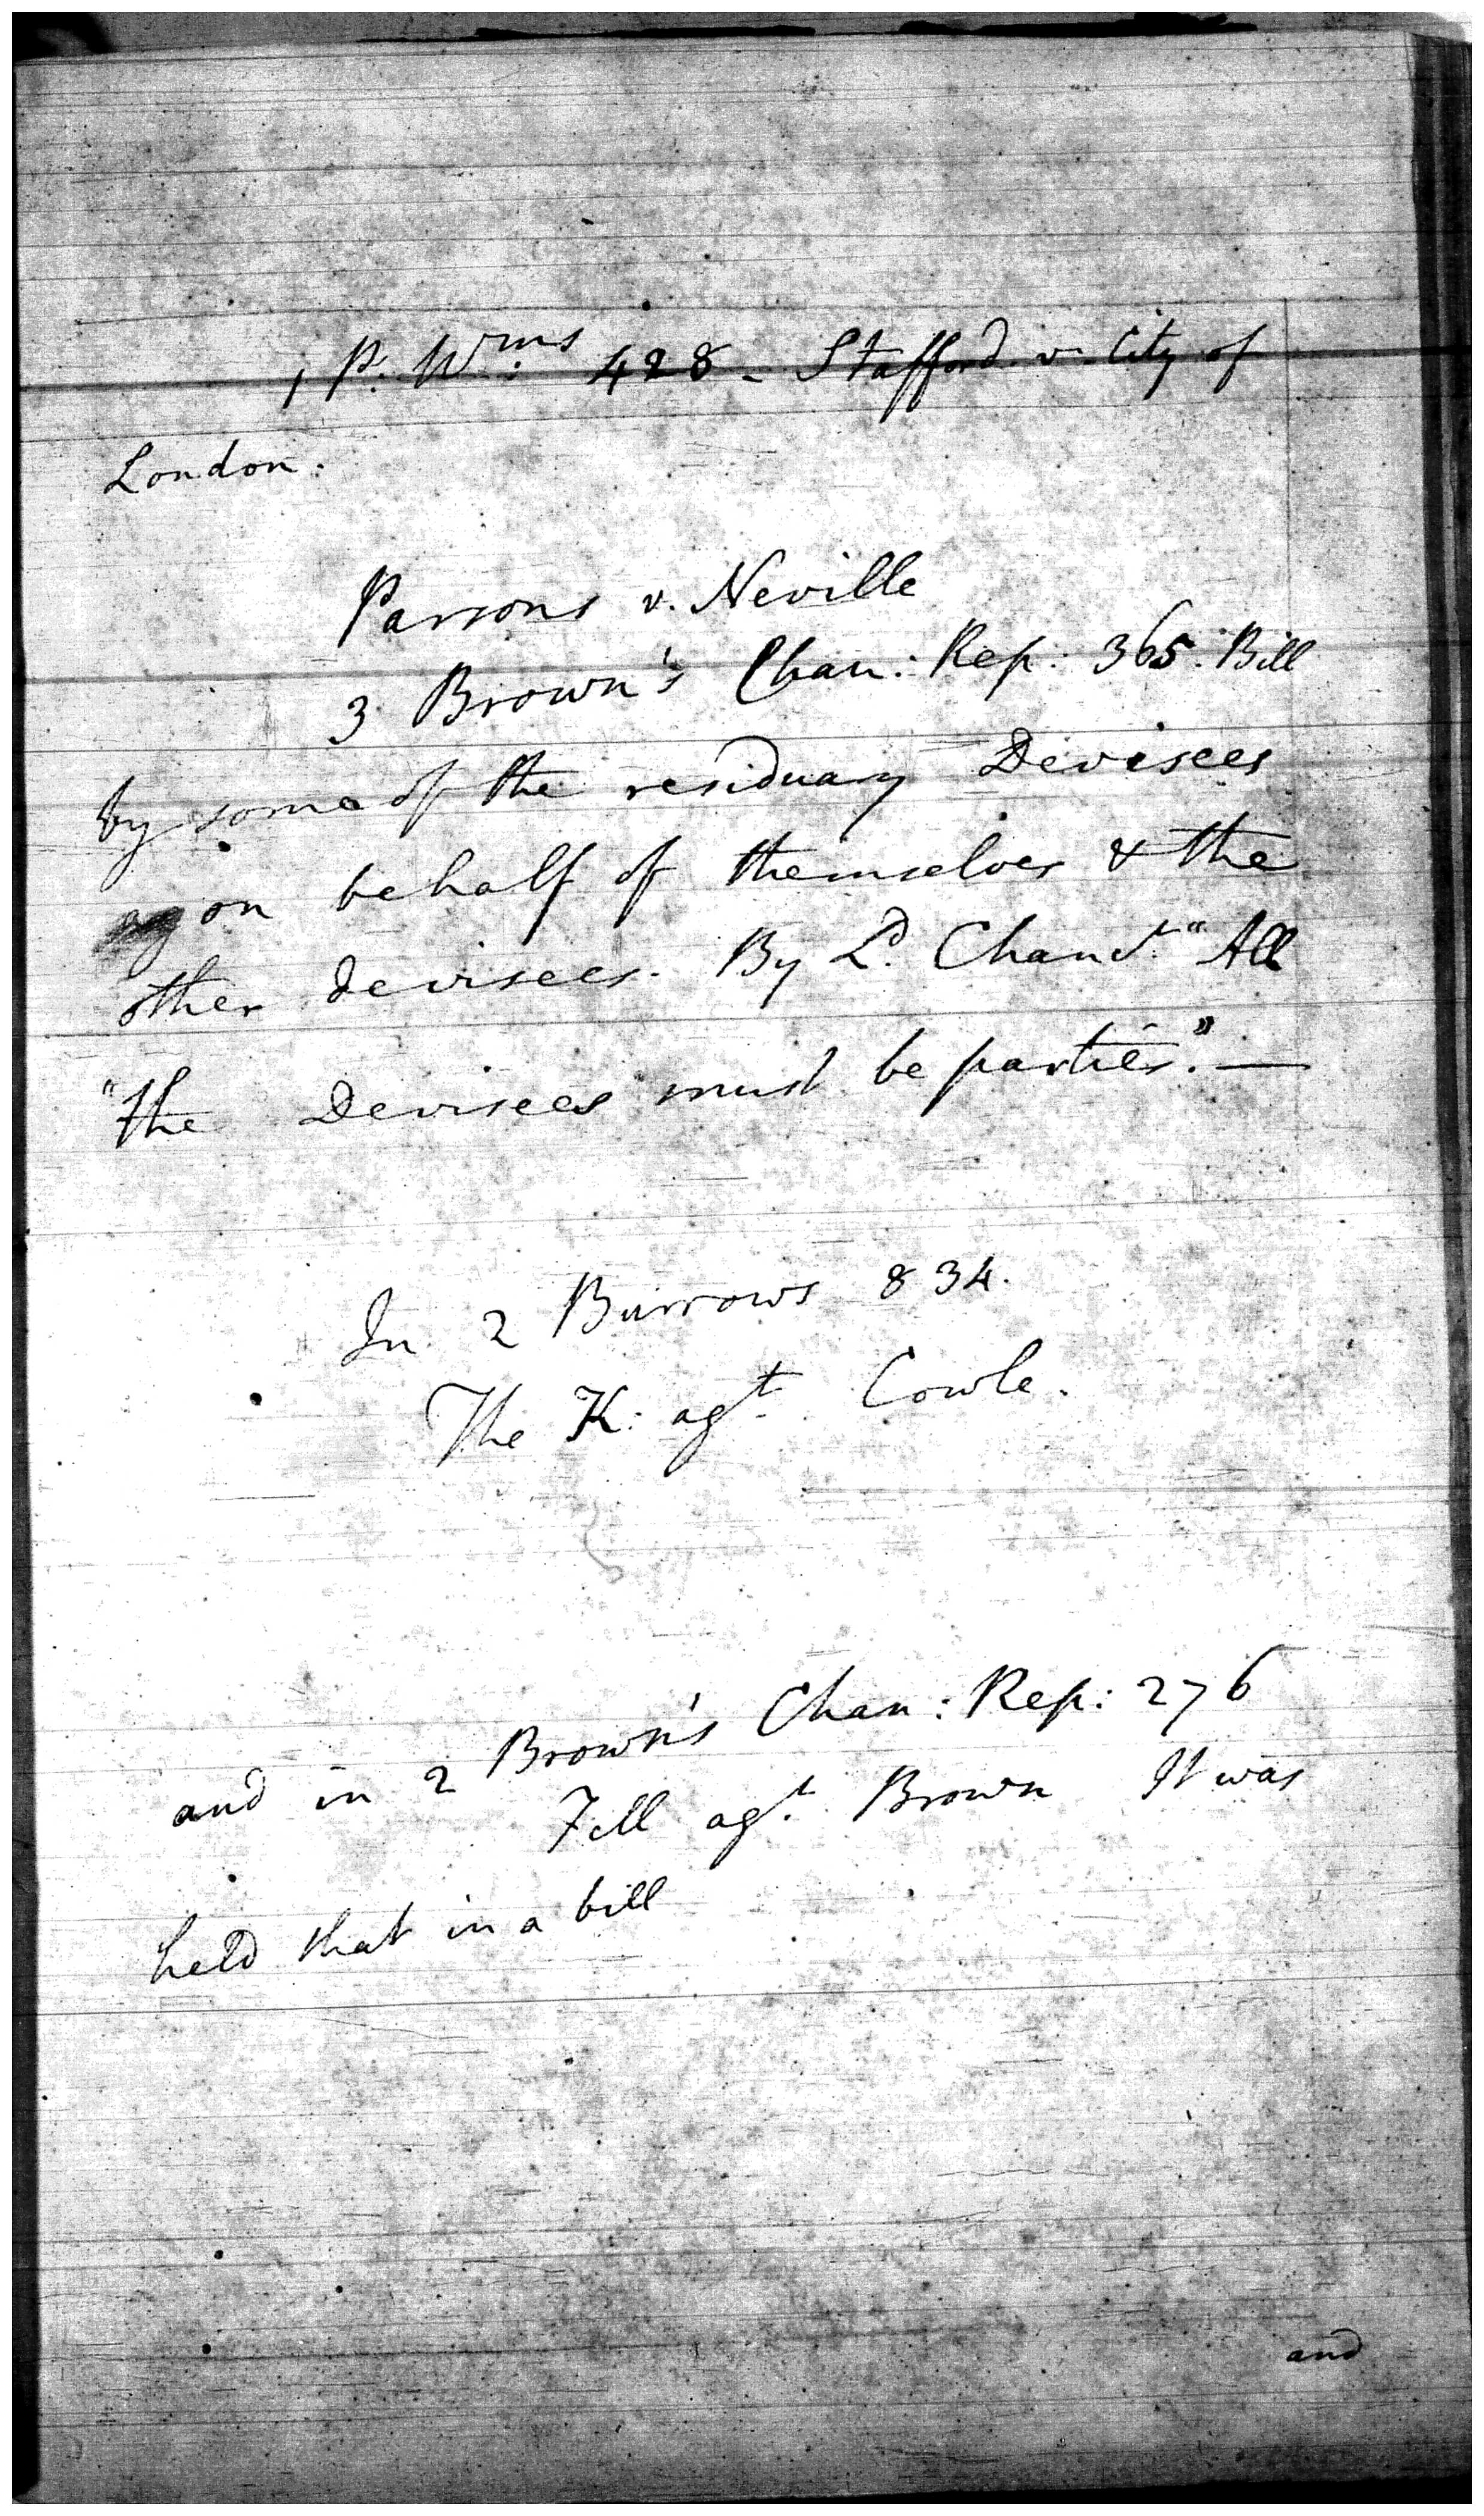 1 P. Wms: 428 - Stafford v. City of
London.
Parsons v. Neville
3 Brown's Chan: Rep: 365. Bill
by some of the residuary Devisees
on behalf of themselves & the
other devisees. By Ld. Chanr. "All
"the Devisees must be parties." —
In 2 Burrows 834.
The K: agt. Cowle.
and in 2 Brown's Chan: Rep: 276
Fell agt. Brown It was
held that in a bill
and